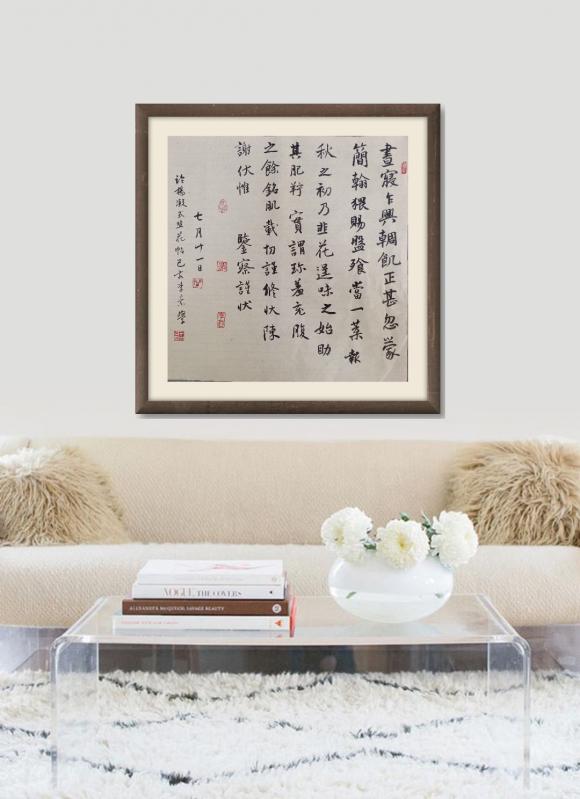 晝寢乍興輖飢正甚忽蒙
簡翰猥賜盤飧當一葉報
秋之初乃韭花逞味之始助
其肥羜實謂珎羞充腹
之餘銘肌載切謹修狀陳
謝伏惟鑒察謹狀
七月廿一日
臨楊凝式韭花帖己亥李景
VOGUE THE COVERS
ALEXANDER MCQUEEN: SAVAGE BEAUTY